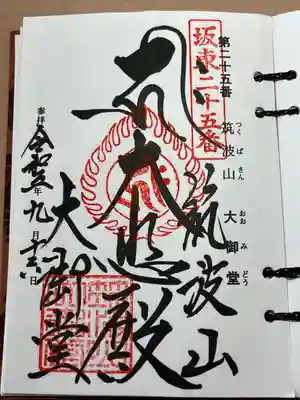 第二十五番
筑波山
つくばさん
大御堂
おおみどう
坂東二十五番
筑波山
大悲殿
大御堂
参拝
令和
年九月
日